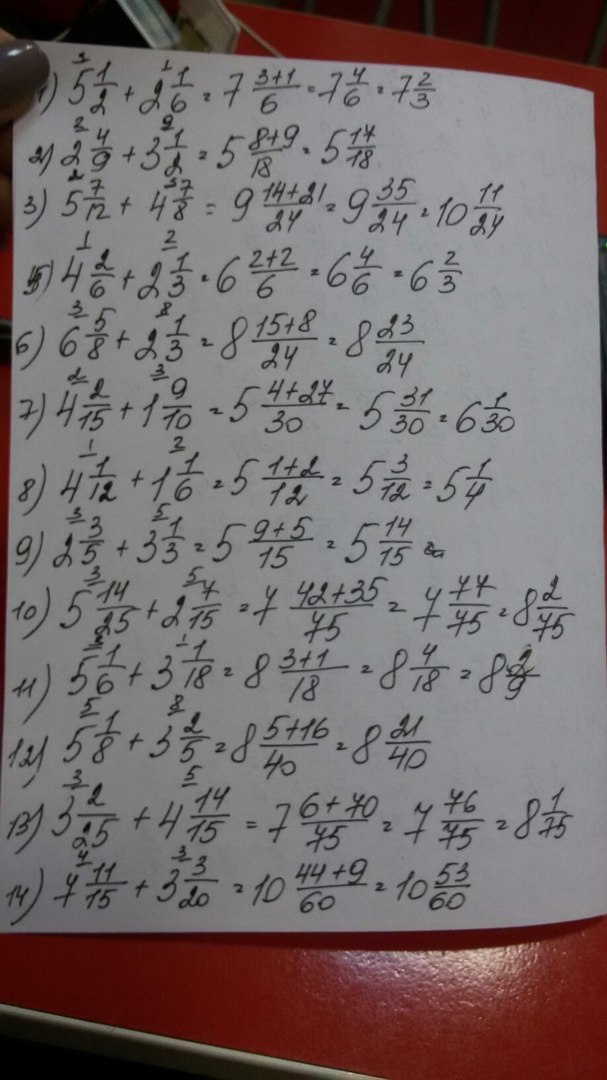 1) 5 1/2 + 2 1/6 = 7 (3+1)/6 = 7 4/6 = 7 2/3
2) 2 4/9 + 3 1/2 = 5 (8+9)/18 = 5 17/18
3) 5 7/12 + 4 7/8 = 9 (14+21)/24 = 9 35/24 = 10 11/24
5) 4 2/6 + 2 1/3 = 6 (2+2)/6 = 6 4/6 = 6 2/3
6) 6 5/8 + 2 1/3 = 8 (15+8)/24 = 8 23/24
7) 4 2/15 + 1 9/10 = 5 (4+27)/30 = 5 31/30 = 6 1/30
8) 4 1/12 + 1 1/6 = 5 (1+2)/12 = 5 3/12 = 5 1/4
9) 2 3/5 + 3 1/3 = 5 (9+5)/15 = 5 14/15
10) 5 14/25 + 2 7/15 = 7 (42+35)/75 = 7 77/75 = 8 2/75
11) 5 1/6 + 3 1/18 = 8 (3+1)/18 = 8 4/18 = 8 2/9
12) 5 1/8 + 3 2/5 = 8 (5+16)/40 = 8 21/40
13) 3 2/25 + 4 14/15 = 7 (6+70)/75 = 7 76/75 = 8 1/75
14) 7 11/15 + 3 3/20 = 10 (44+9)/60 = 10 53/60